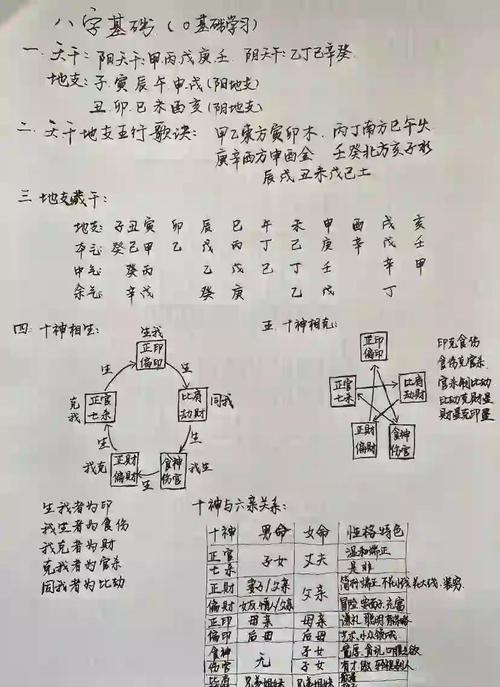 八字基础(0基础学习)
一.天干:阳天干:甲丙戊庚壬 阴天干:乙丁己辛癸
地支:子.寅辰午申.戌(阳地支)
丑.卯.巳未酉亥(阴地支)
二.天干地支五行歌诀: 甲乙东方寅卯木. 丙丁南方巳午火
庚辛西方申酉金 壬癸北方亥子水
辰戌丑未戊己土
三.地支藏干:
地支:子丑寅 卯 辰 巳 午 未 申 酉 戌 亥
本气:癸己甲 乙 戊 丙 丁 己 庚 辛 戊 壬
中气: 癸丙 乙 戊 己 丁 壬 辛 甲
余气: 辛戊 癸 庚 乙 戊 丁
四.十神相生:
生我
正印
偏印
生
生
正官
七杀
克我
比肩
劫财
同我
生
生
正财
偏财
我克
生
食神
伤官
我生
生我者为印
我生者为食伤
我克者为财
克我者为官杀
同我者为比劫
五.十神相克:
正印
偏印
正官
七杀
比肩
劫财
正财
偏财
食神
伤官
印克食伤
食伤克官杀
官杀制比劫
比劫克财星
财星克印星
十神与六亲关系:
十神 男命 女命 性格特色
正官 子女 丈夫 温和端正
七杀 是非
正财 妻子/父亲 父亲
偏财
正印 母亲 母亲
偏印 后母 后母 艺术.
食神 无 子女
伤官 子女
兄弟姐妹